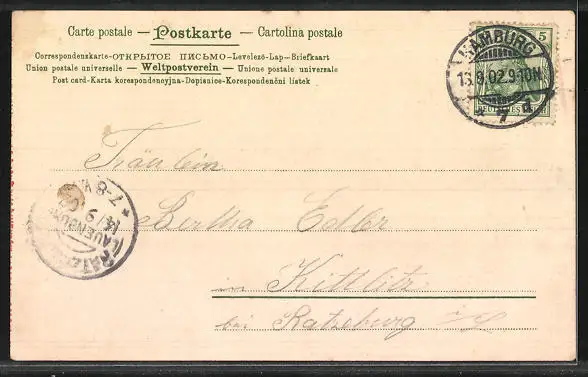 Carte postale — Postkarte — Cartolina postale
Correspondenzkarte-ОТКРЫТОЕ ПИСЬМО-Levelező-Lap-Briefkaart
Union postale universelle — Weltpostverein — Unione postale universale
Post card-Karta korespondencyjna-Dopisnice-Korespondenční lístek
HAMBURG
13.9.02.9-10N.
* 7 d.
5
DEUTSCHES REICH
Fräulein
Bertha Edler
in Kittlitz
bei Ratzeburg i/L
* 7-8 V.
14/9
(LAUENBURG)